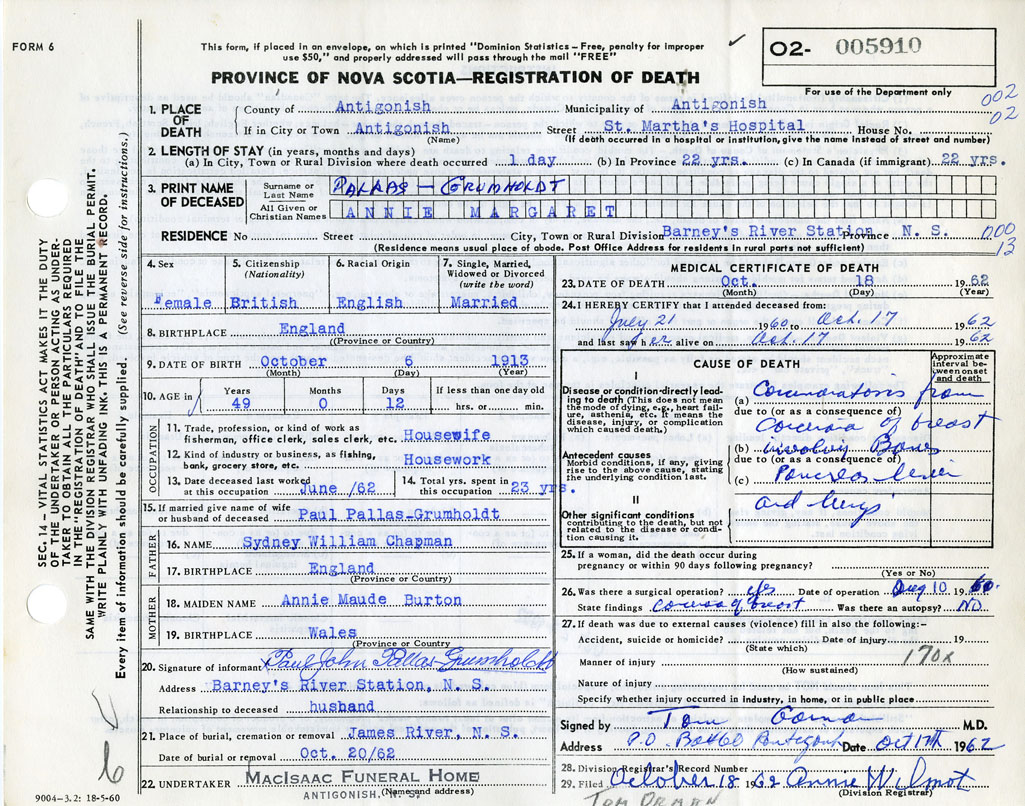 FORM 6
This form, if placed in an envelope, on which is printed "Dominion Statistics – Free, penalty for improper
use $50," and properly addressed will pass through the mail "FREE"
PROVINCE OF NOVA SCOTIA—REGISTRATION OF DEATH
O2- 005910
For use of the Department only
002
02
1. PLACE OF DEATH
County of Antigonish Municipality of Antigonish
If in City or Town Antigonish Street St. Martha's Hospital House No.
(Name) (If death occurred in a hospital or institution, give the name instead of street and number)
2. LENGTH OF STAY (in years, months and days)
(a) In City, Town or Rural Division where death occurred 1 day (b) In Province 22 yrs. (c) In Canada (if immigrant) 22 yrs.
3. PRINT NAME OF DECEASED
Surname or Last Name PALLAS – GRUMHOLDT
All Given or Christian Names ANNIE MARGARET
RESIDENCE No Street City, Town or Rural Division Barney's River Station Province N. S.
000
13
(Residence means usual place of abode. Post Office Address for residents in rural parts not sufficient)
4. Sex
Female
5. Citizenship (Nationality)
British
6. Racial Origin
English
7. Single, Married, Widowed or Divorced (write the word)
Married
8. BIRTHPLACE England
(Province or Country)
9. DATE OF BIRTH October 6 1913
(Month) (Day) (Year)
10. AGE in Years 49 Months 0 Days 12 If less than one day old hrs. or min.
OCCUPATION
11. Trade, profession, or kind of work as
fisherman, office clerk, sales clerk, etc. Housewife
12. Kind of industry or business, as fishing,
bank, grocery store, etc. Housework
13. Date deceased last worked
at this occupation June /62
14. Total yrs. spent in
this occupation 23 yrs.
15. If married give name of wife
or husband of deceased Paul Pallas-Grumholdt
FATHER
16. NAME Sydney William Chapman
17. BIRTHPLACE England
(Province or Country)
MOTHER
18. MAIDEN NAME Annie Maude Burton
19. BIRTHPLACE Wales
(Province or Country)
20. Signature of informant Paul John Pallas-Grumholdt
Address Barney's River Station, N. S.
Relationship to deceased husband
21. Place of burial, cremation or removal James River, N. S.
Date of burial or removal Oct. 20/62
22. UNDERTAKER MACISAAC FUNERAL HOME
ANTIGONISH, N. S.
(Name and address)
MEDICAL CERTIFICATE OF DEATH
23. DATE OF DEATH Oct. 18 1962
(Month) (Day) (Year)
24. I HEREBY CERTIFY that I attended deceased from:
July 21 1960 to Oct. 17 1962
and last saw her alive on Oct. 17 1962
CAUSE OF DEATH
Approximate interval between onset and death
I
Disease or condition directly leading
to death (This does not mean
the mode of dying, e.g., heart failure,
asthenia, etc. It means the
disease, injury, or complication
which caused death.)
(a) from
due to (or as a consequence of)
of breast
Antecedent causes
Morbid conditions, if any, giving
rise to the above cause, stating
the underlying condition last.
(b) involving Bones
due to (or as a consequence of)
(c) Pancreas liver
II
and lungs
Other significant conditions
contributing to the death, but not
related to the disease or condition
causing it.
25. If a woman, did the death occur during
pregnancy or within 90 days following pregnancy?
(Yes or No)
26. Was there a surgical operation? yes Date of operation Aug 10 1960
State findings of breast Was there an autopsy? NO
27. If death was due to external causes (violence) fill in also the following:–
Accident, suicide or homicide? Date of injury 19
(State which)
170x
Manner of injury
(How sustained)
Nature of injury
Specify whether injury occurred in industry, in home, or in public place
Signed by Tom Gorman M.D.
Address P.O. Box 60 Antigonish Date Oct 17th 1962
28. Division Registrar's Record Number
29. Filed October 18 1962 Annie Wilmot
(Division Registrar)
SEC. 14 – VITAL STATISTICS ACT MAKES IT THE DUTY
OF THE UNDERTAKER OR PERSON ACTING AS UNDERTAKER
TO OBTAIN ALL THE PARTICULARS REQUIRED
IN THE "REGISTRATION OF DEATH" AND TO FILE THE
SAME WITH THE DIVISION REGISTRAR WHO SHALL ISSUE THE BURIAL PERMIT.
WRITE PLAINLY WITH UNFADING INK. THIS IS A PERMANENT RECORD.
Every item of information should be carefully supplied. (See reverse side for instructions.)
6
9004–3.2: 18-5-60